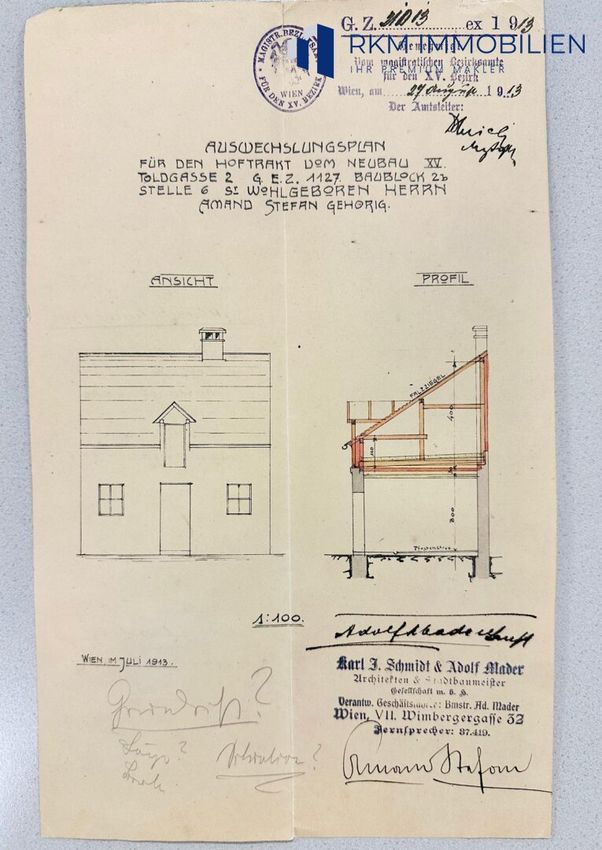 G. Z. 21013 ex 1913
RKM IMMOBILIEN
IHR PREMIUM MAKLER
MAGISTR. BEZIRKSAMT
FÜR DEN XV. BEZIRK
WIEN
Genehmigt
Vom magistratischen Bezirksamte
für den XV. Bezirk
Wien, am 27 August 1913
Der Amtsleiter:
AUSWECHSLUNGSPLAN
FÜR DEN HOFTRAKT VOM NEUBAU XV.
TOLDGASSE 2 G.E.Z. 1127 BAUBLOCK 2b
STELLE 6 Sr WOHLGEBOREN HERRN
AMAND STEFAN GEHÖRIG.
ANSICHT
PROFIL
FALZZIEGEL
400
300
1:100.
WIEN, IM JULI 1913.
Karl J. Schmidt & Adolf Mader
Architekten & Stadtbaumeister
Gesellschaft m. b. H.
Verantw. Geschäftsführer: Bmstr. Ad. Mader
Wien, VII. Wimbergergasse 32
Fernsprecher: 37.419.
Grundriss?
Länge?
Situation?
Amand Stefan